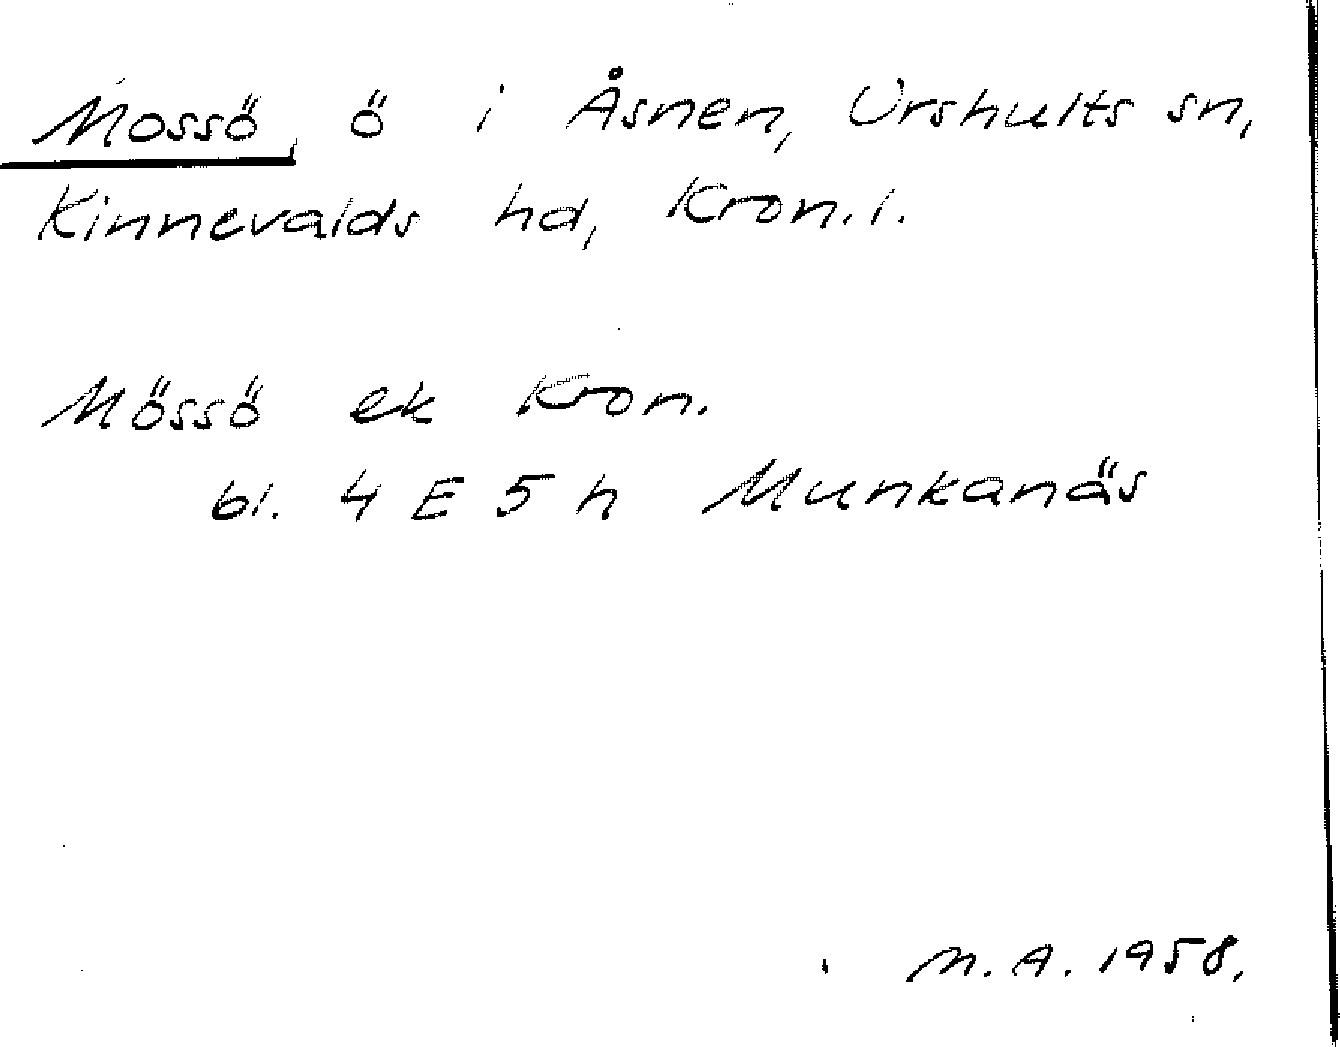 Mossö, ö i Åsnen, Urshults sn,
Kinnevalds hd, Kron.l.
Mössö ek Kron.
bl. 4 E 5 h Munkanäs
M.A. 1958.